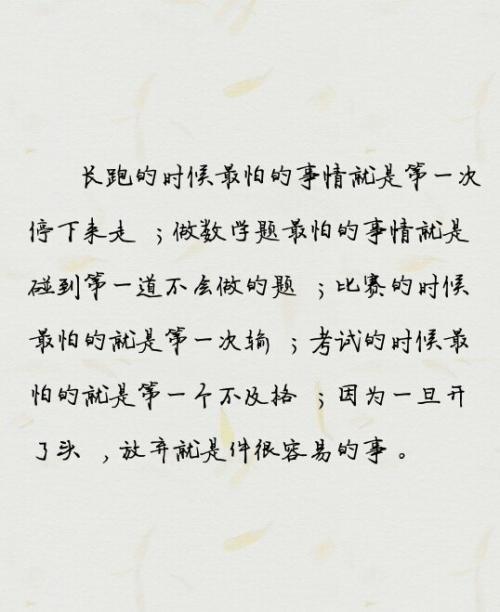 长跑的时候最怕的事情就是第一次
停下来走 ;做数学题最怕的事情就是
碰到第一道不会做的题 ;比赛的时候
最怕的就是第一次输 ;考试的时候最
怕的就是第一个不及格 ;因为一旦开
了头 ,放弃就是件很容易的事。